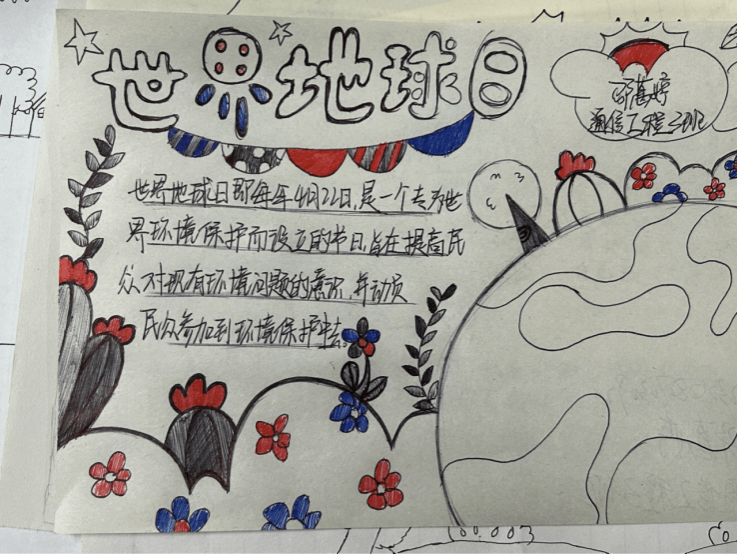 世界地球日
高婷
通信工程3班
世界地球日即每年4月22日,是一个专为世
界环境保护而设立的节日,旨在提高民
众对现有环境问题的意识,并动员
民众参加到环境保护中去。